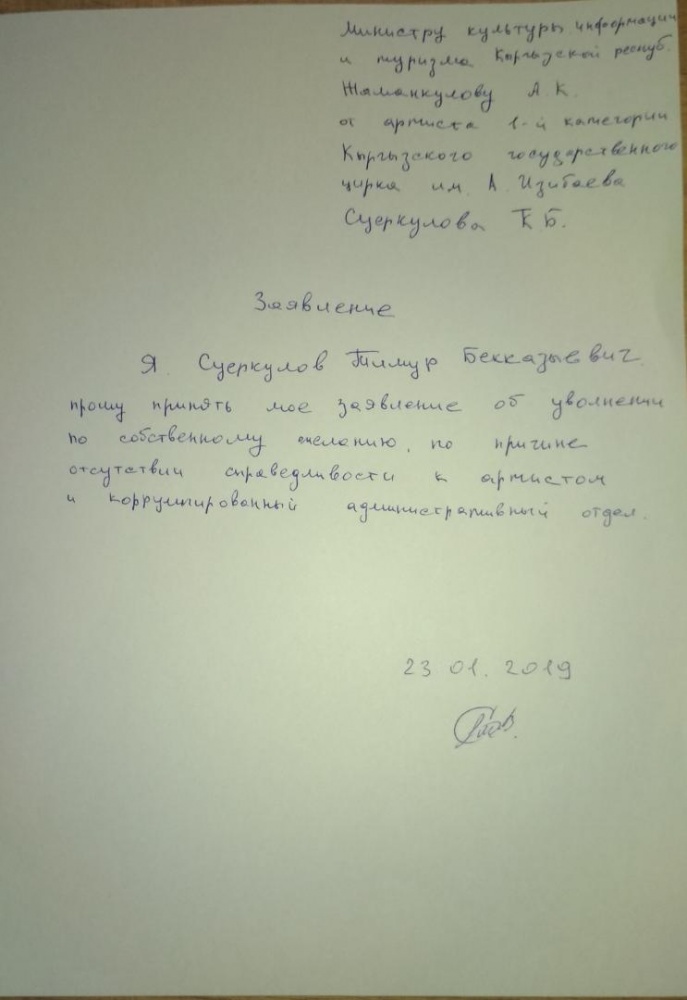 Министру культуры, информации
и туризма Кыргызской респуб.
Жаманкулову А.К.
от артиста 1-й категории
Кыргызского государственного
цирка им. А. Изибаева
Суеркулова Т.Б.
Заявление
Я. Суеркулов Тимур Бекказыевич
прошу принять мое заявление об уволнении
по собственному желанию, по причине
отсутствии справедливости к артистом
и коррумпированный административный отдел.
23 01. 2019